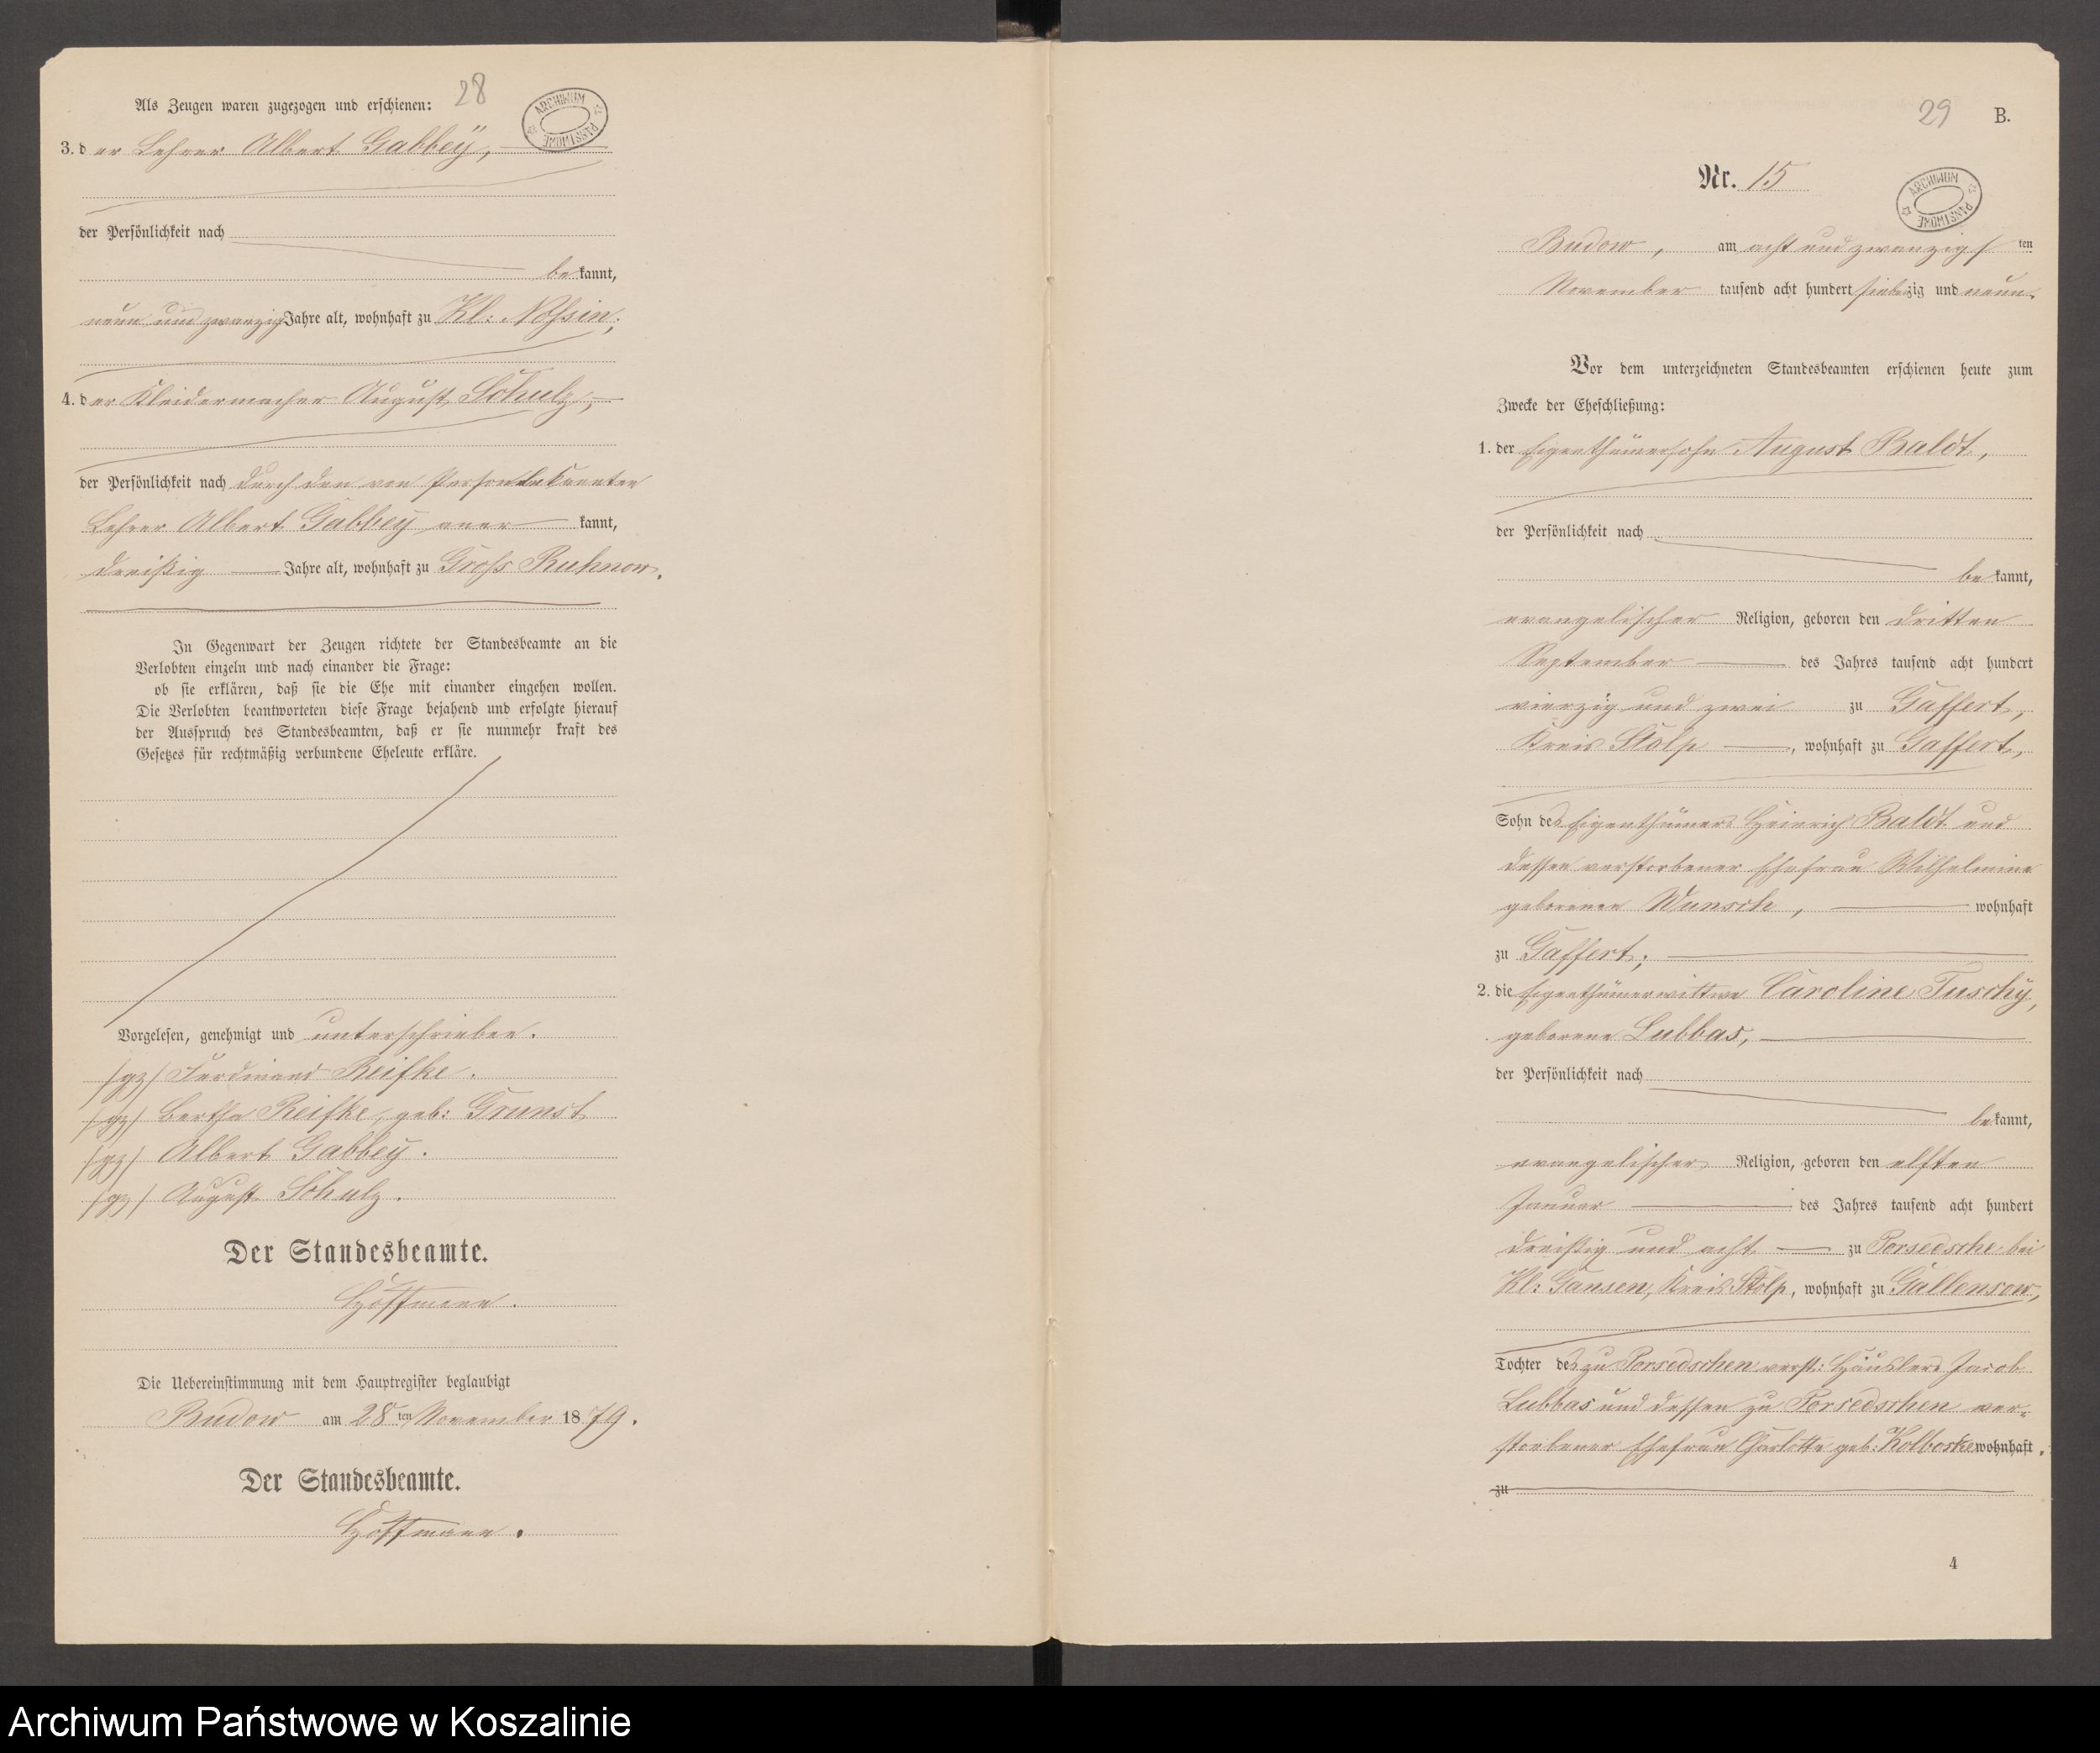 28
Als Zeugen waren zugezogen und erschienen:
ARCHIWUM PAŃSTWOWE
3. der Lehrer Albert Gabbey,
der Persönlichkeit nach
bekannt,
neun und zwanzig Jahre alt, wohnhaft zu Kl: Nossin;
4. der Kleidermacher August Schulz,
der Persönlichkeit nach durch den von Person bekannten
Lehrer Albert Gabbey aner kannt,
dreißig Jahre alt, wohnhaft zu Gross Ruhnow.
In Gegenwart der Zeugen richtete der Standesbeamte an die
Verlobten einzeln und nach einander die Frage:
ob sie erklären, daß sie die Ehe mit einander eingehen wollen.
Die Verlobten beantworteten diese Frage bejahend und erfolgte hierauf
der Ausspruch des Standesbeamten, daß er sie nunmehr kraft des
Gesetzes für rechtmäßig verbundene Eheleute erkläre.
Vorgelesen, genehmigt und unterschrieben.
/gz/ Ferdinand Reifke.
/gz/ Bertha Reifke, geb: Grunst
/gz/ Albert Gabbey.
/gz/ August Schulz.
Der Standesbeamte.
Hoffmann.
Die Uebereinstimmung mit dem Hauptregister beglaubigt
Budow am 28ten November 1879.
Der Standesbeamte.
Hoffmann.
29 B.
Nr. 15
ARCHIWUM PAŃSTWOWE
Budow, am acht und zwanzigsten
November tausend acht hundert siebenzig und neun.
Vor dem unterzeichneten Standesbeamten erschienen heute zum
Zwecke der Eheschließung:
1. der Eigenthümersohn August Baldt,
der Persönlichkeit nach
bekannt,
evangelischer Religion, geboren den dritten
September des Jahres tausend acht hundert
vierzig und zwei zu Gaffert,
Kreis Stolp, wohnhaft zu Gaffert,
Sohn des Eigenthümers Heinrich Baldt und
dessen verstorbener Ehefrau Wilhelmine
geborenen Wunsch, wohnhaft
zu Gaffert;
2. die Eigenthümerwittwe Caroline Tuschy,
geborene Lubbas,
der Persönlichkeit nach
bekannt,
evangelischer Religion, geboren den elften
Januar des Jahres tausend acht hundert
dreißig und acht zu Porsedsche bei
Kl: Gansen, Kreis Stolp, wohnhaft zu Gallensow,
Tochter des zu Porsedschen verst: Häuslers Jacob
Lubbas und dessen zu Porsedschen ver-
storbener Ehefrau Charlotte geb: Kolboske wohnhaft.
zu
4
Archiwum Państwowe w Koszalinie